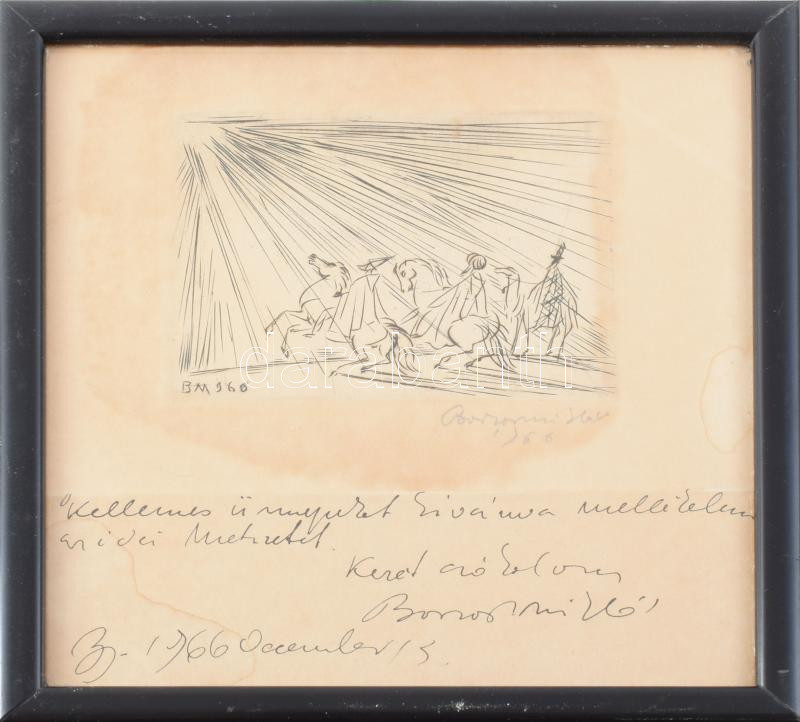 BM 966
darabanth
Borsos Miklós
1966
Kellemes ünnepeket kivánva mellékelem
az idei metszetet.
Kezét csókolom
Borsos Miklós
Bp. 1966 December